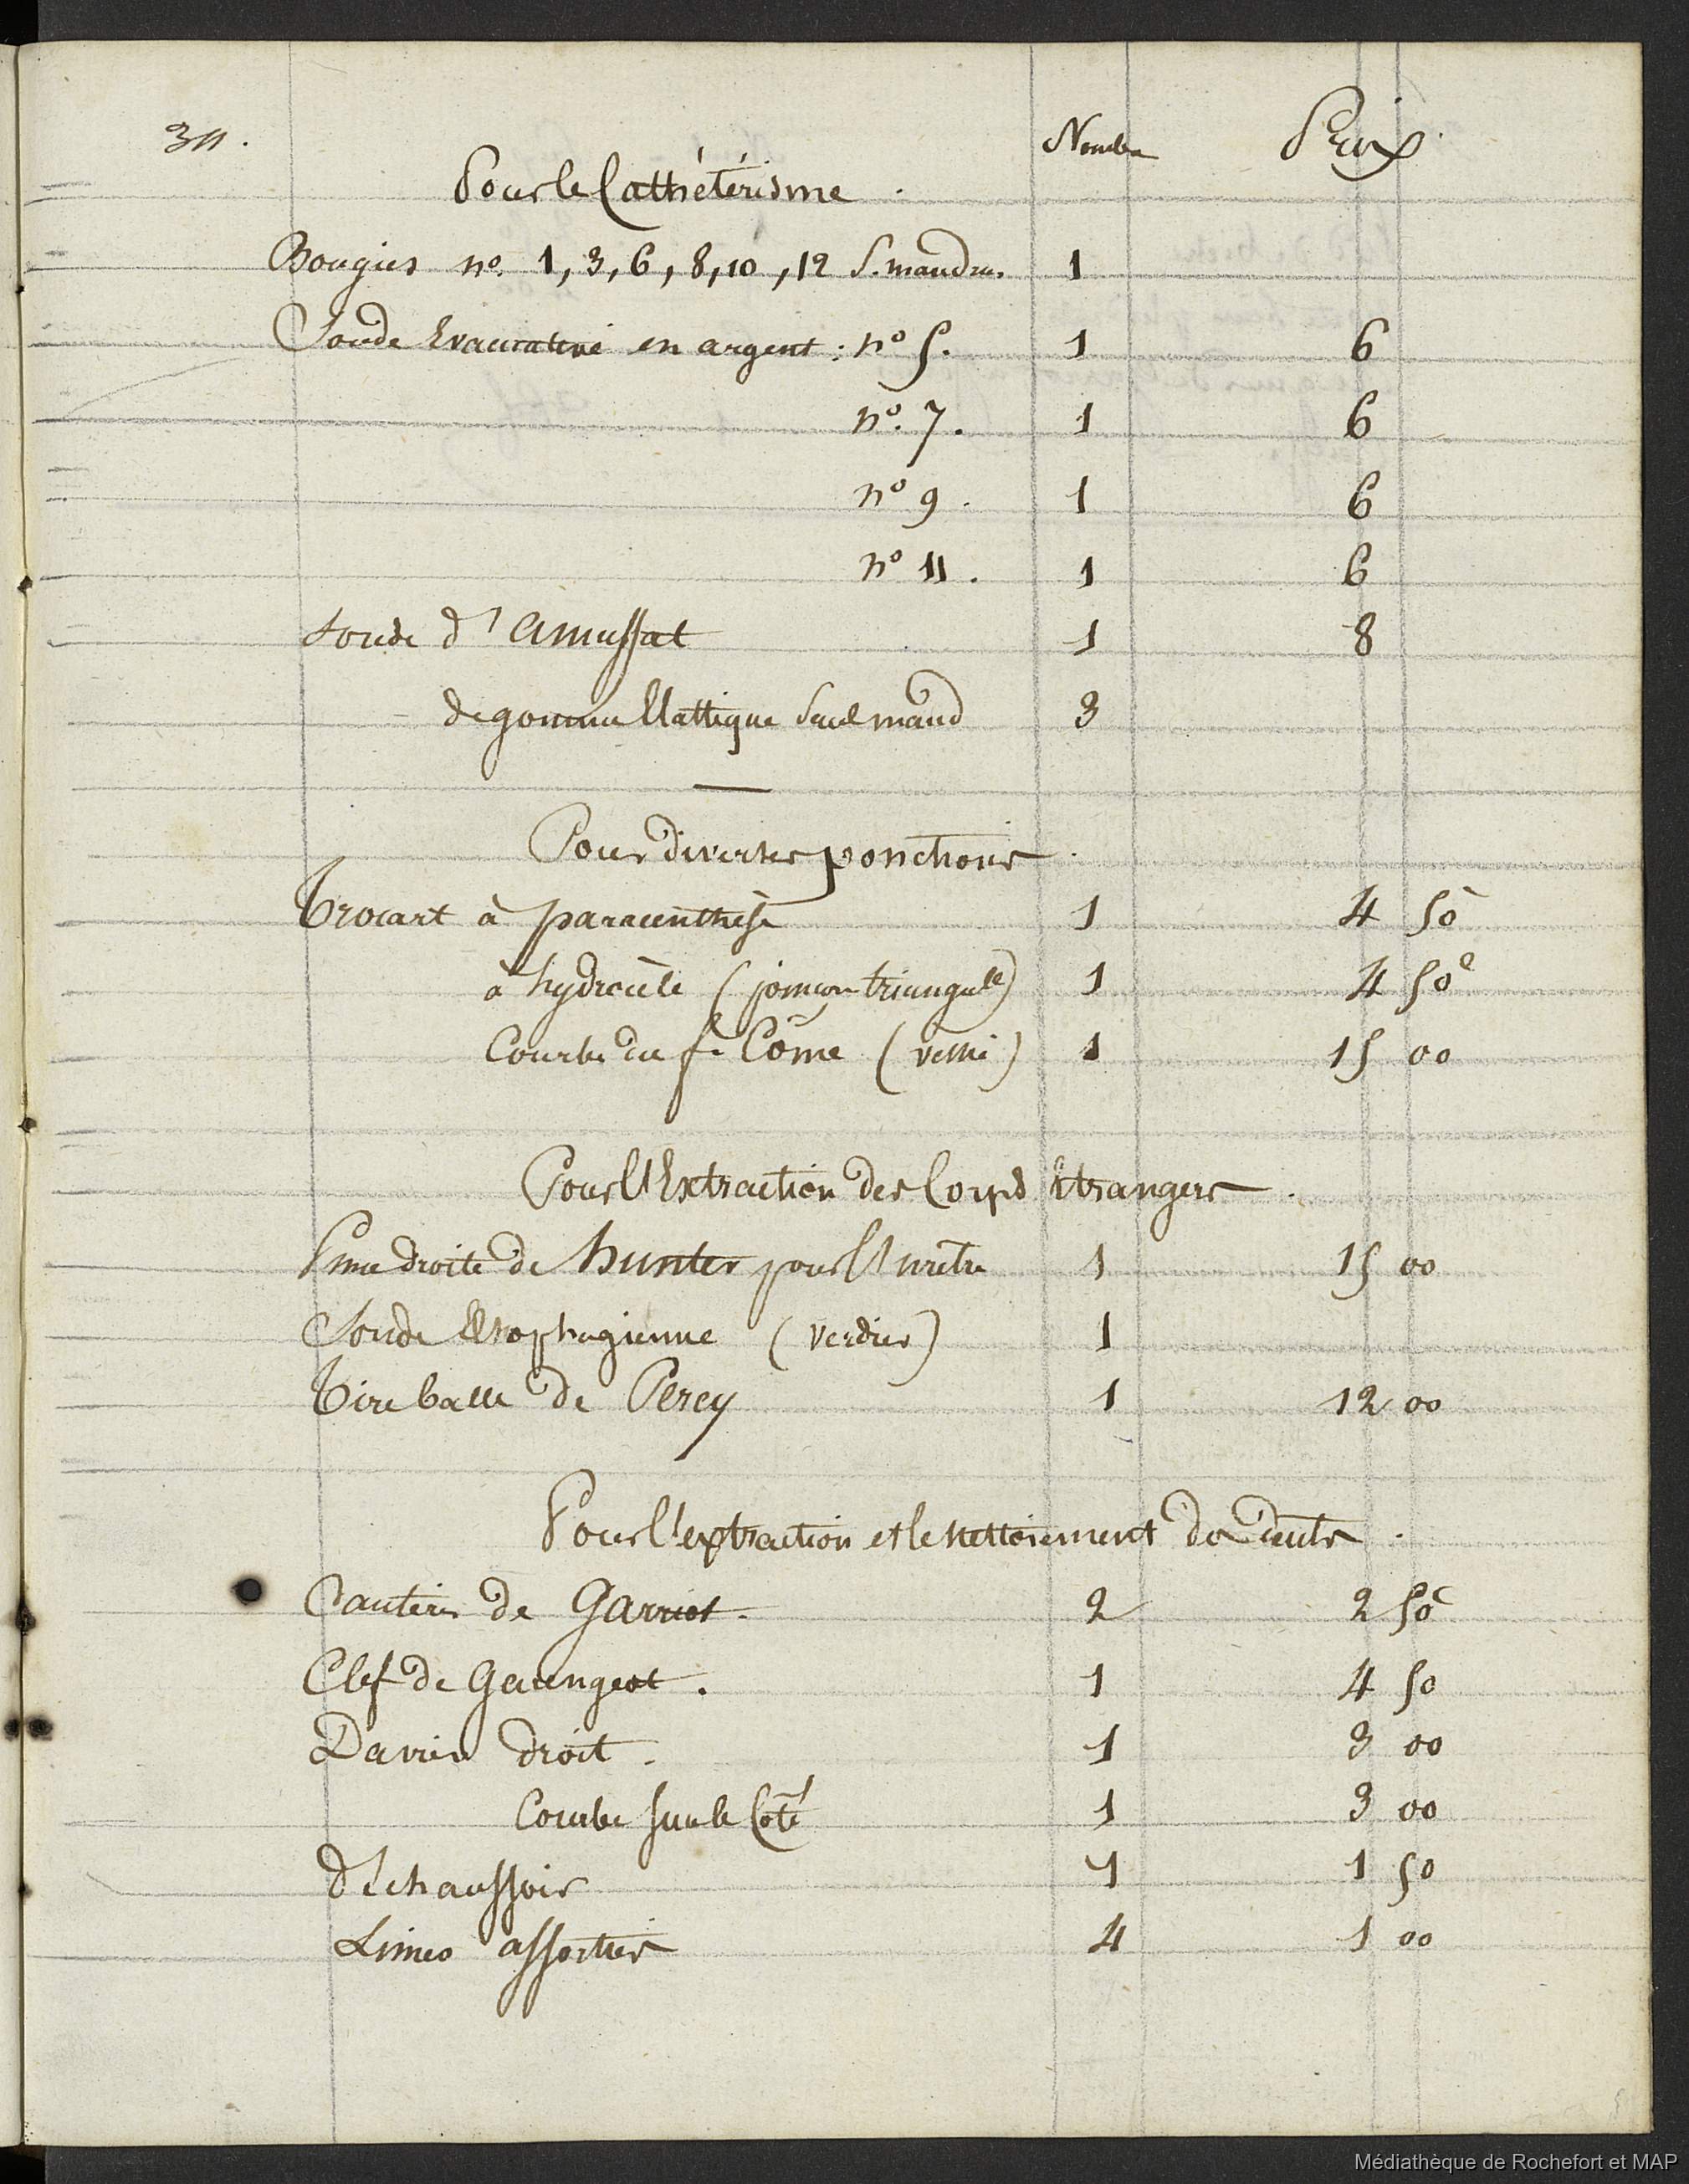 311. Nombre Prix
Pour le Cathétérisme.
Bougies no. 1, 3, 6, 8, 10, 12 S. mandrin. 1
Sonde Evacuative en argent : no 5. 1 6
no. 7. 1 6
no 9. 1 6
no 11. 1 6
Sonde d'amussat 1 8
de gomme Elastique Seul mand 3
Pour diverses ponctions.
Trocart à paracenthèse 1 4 50
à hydrocèle (poinçon triangulre) 1 4 50c
Courbe du fr. Côme (vessie) 1 15 00
Pour l'Extraction des Corps Etrangers.
Pince droite de hunter pour l'urètre 1 15 00
Sonde Œsophagienne (Verdier) 1
Tire balle de Percy 1 12 00
Pour l'extraction et le Nettoiement des dents.
Cautères de Garriot. 2 2 50c
Clef de Garengeot. 1 4 50
Davier droit. 1 3 00
Courbe sur le Côté 1 3 00
Déchaussoir 1 1 50
Limes assorties 4 1 00
Médiathèque de Rochefort et MAP